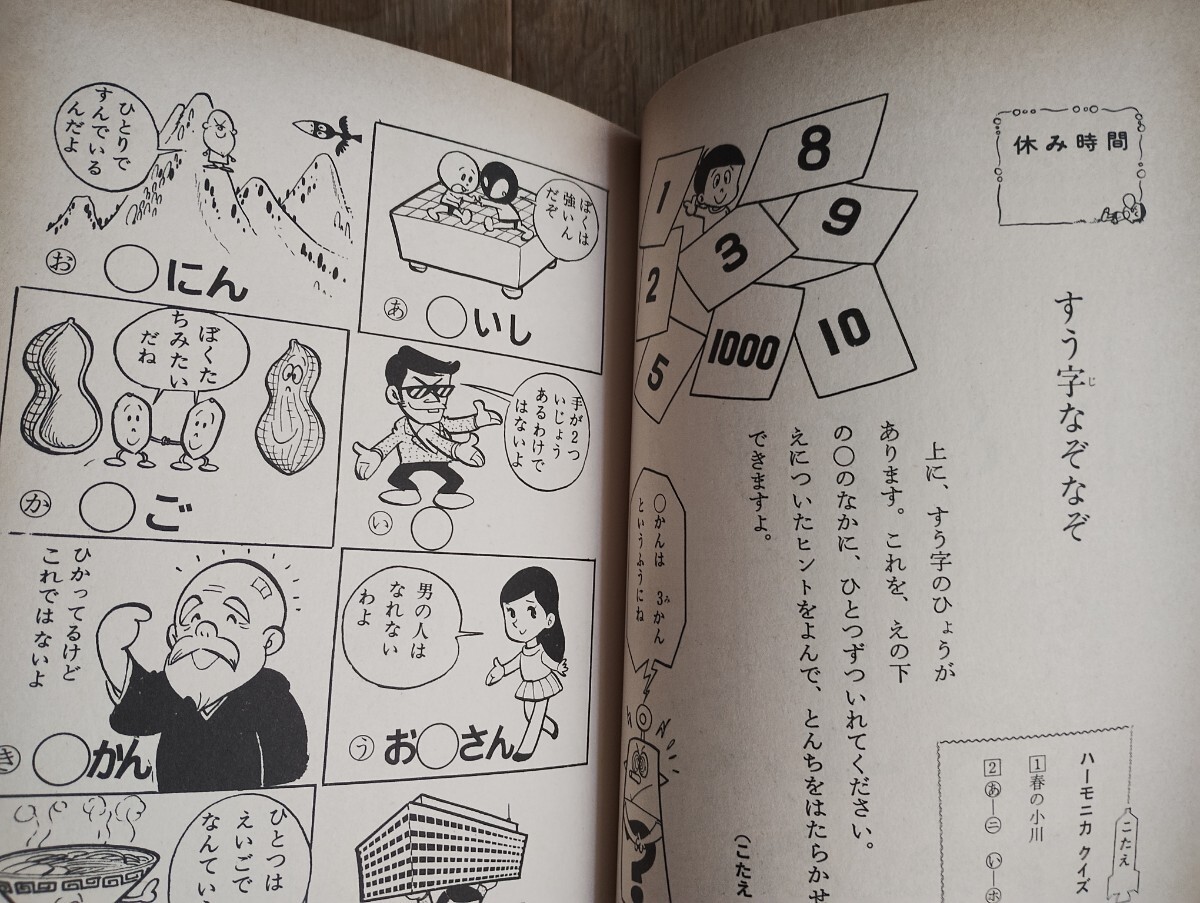 休み時間
すう字なぞなぞ
じ
8
1
9
3
2
1000
10
5
上に、すう字のひょうが
あります。これを、えの下
の〇のなかに、ひとつずついれてください。
えについたヒントをよんで、とんちをはたらかせ
できますよ。
(こたえ
〇かんは 3かん
み
というふうにね
?
こたえ
ハーモニカ クイズ
1 春の小川
2 あ―ニ い―ホ
ぼくは
強いん
だぞ
あ 〇いし
手が2つ
いじょう
あるわけで
はないよ
い 〇
男の人は
なれない
わよ
う お〇さん
ひとりで
すんでいる
んだよ
お 〇にん
ぼくた
ちみたい
だね
か 〇ご
ひかってるけど
これではないよ
き 〇かん
ひとつは
えいごで
なんてい